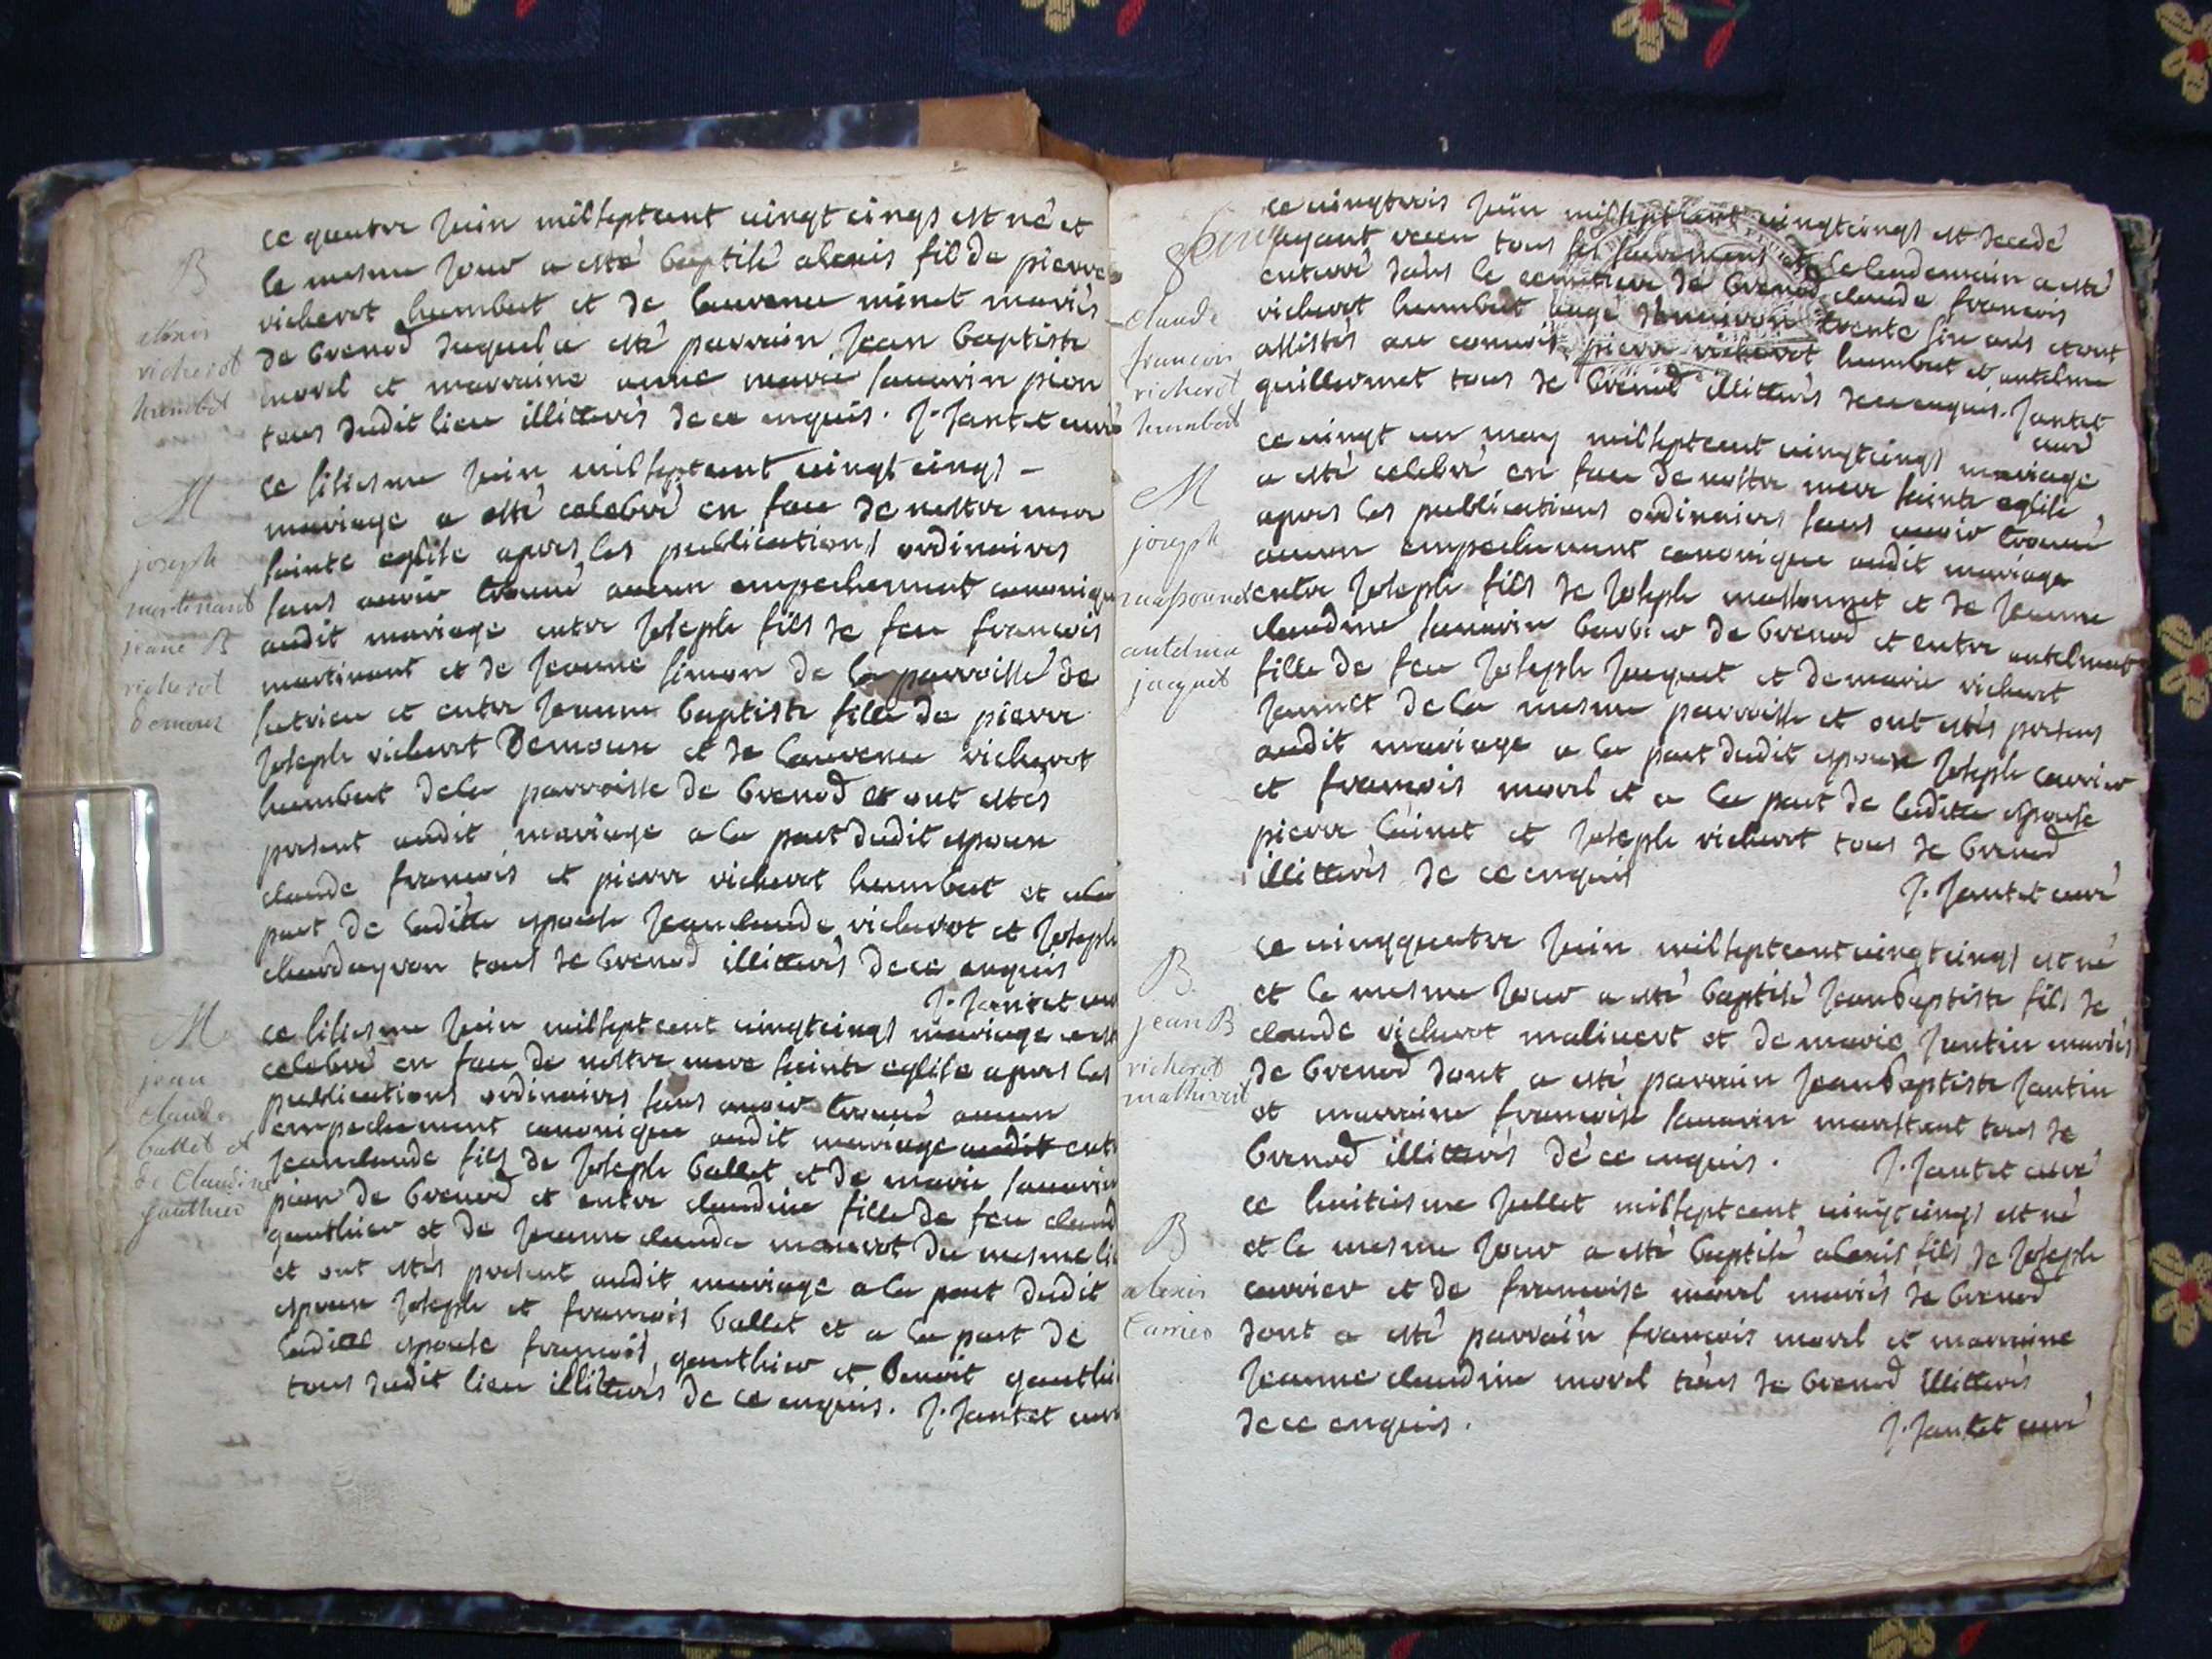 B
alexis
richerot
humbert
ce quatre juin mil sept cent vingt cinqs est né et
le mesme jour a esté baptisé alexis fil de pierre
richerot humbert et de laurence minet mariés
de brenod duquel a esté parrain jean baptiste
morel et marraine anne marie sauarin pion
tous dudit lieu illitterés de ce enquis. J. Jantet curé
M
joseph
martinant
jeane B
richerot
demoux
ce sisiesme juin mil sept cent vingt cinqs –
mariage a esté celebré en face de nostre mere
sainte eglise apres les publications ordinaires
sans auoir trouué aucun empechement canonique
audit mariage entre joseph fils de feu francois
martinant et de jeanne simon de la parroisse de
et entre jeanne baptiste fille de pierre
joseph richerot Demoux et de laurence richerot
humbert dela parroisse de brenod et ont estes
present audit mariage a la part dudit espoux
claude francois et pierre richerot humbert et ala
part de laditte espouse jeanclaude richerot et joseph
chardeyron tous de brenod illitterés dece enquis
J. Jantet curé
M
jean
claude
ballet et
de Claudine
gauthier
ce sisiesme juin mil sept cent vingtcinqs mariage a esté
celebré en face de nostre mere sainte eglise apres les
publications ordinaires sans auoir trouué aucun
empechement canonique audit mariage audit entre
jeanclaude fils de joseph ballet et de marie sauarin
pion de brenod et entre claudine fille de feu claude
gauthier et de jeanne clauda du mesme lieu
et ont estés present audit mariage a la part dudit
espoux joseph et francois ballet et a la part de
laditte espouse francois gauthier et benoit gauthier
tous dudit lieu illitterés de ce enquis. J. Jantet curé
claude
francois
richerot
humbert
ce vingtrois juin mil sept cent vingtcinqs est decedé
ayant receu tous ses sacremens et le lendemain a esté
enterré dans le cemitiere de brenod claude francois
richerot humbert aagé denuiron trente sin ans et ont
assistés au conuois pierre richerot humbert et antelme
guillermet tous de brenod illitterés dece enquis. Jantet
curé
M
joseph
massonnet
antelma
jaquet
ce vingt un may mil sept cent vingtcinqs mariage
a esté celebré en face de nostre mere sainte eglise
apres les publications ordinaires sans auoir trouué
aucun empechement canonique audit mariage
entre joseph fils de joseph massonnet et de jeanne
claudine sauarin barbier de brenod et entre antelmat
fille de feu joseph jaquet et de marie richerot
jannet de la mesme parroisse et ont estés presens
audit mariage a la part dudit espoux joseph carrier
et francois morel et a la part de laditte espouse
pierre et joseph richerot tous de brenod
illitterés de ce enquis
J. Jantet curé
B.
jean B
richerot
mathivert
ce vingquatre juin mil sept cent vingtcinqs est né
et le mesme jour a esté baptisé jeanbaptiste fils de
claude richerot maliuert et de marie jantin mariés
de brenod dont a esté parrain jeanbaptiste jantin
et marraine francoise sauarin tous de
brenod illitterés de ce enquis.
J. Jantet curé
B
alexis
Carrier
ce huitiesme jullet mil sept cent vingtcinqs est né
et le mesme jour a esté baptisé alexis fils de joseph
carrier et de francoise morel mariés de brenod
dont a esté parrain francois morel et marraine
jeanne claudine morel tous de brenod illitterés
dece enquis.
J. Jantet curé